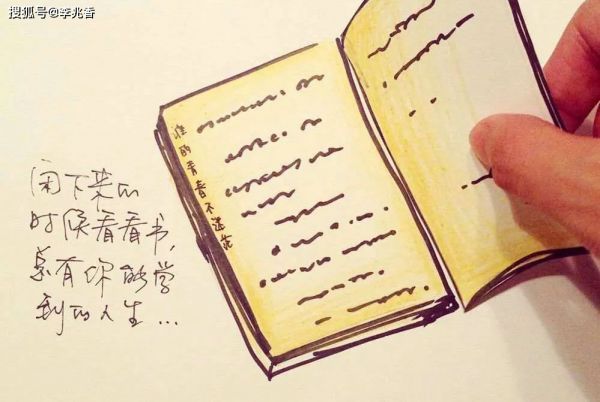 搜狐号@李兆香
闲下来的
时候看看书,
总有你能学
到的人生...
谁的青春不迷茫